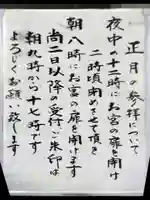 正月の参拝について
夜中の十二時にお宮の扉を開け
二時頃閉めさせて頂き
朝八時にお宮の扉を開けます
尚二日以降の受付ご朱印は
朝九時から十七時です
よろしくお願い致します